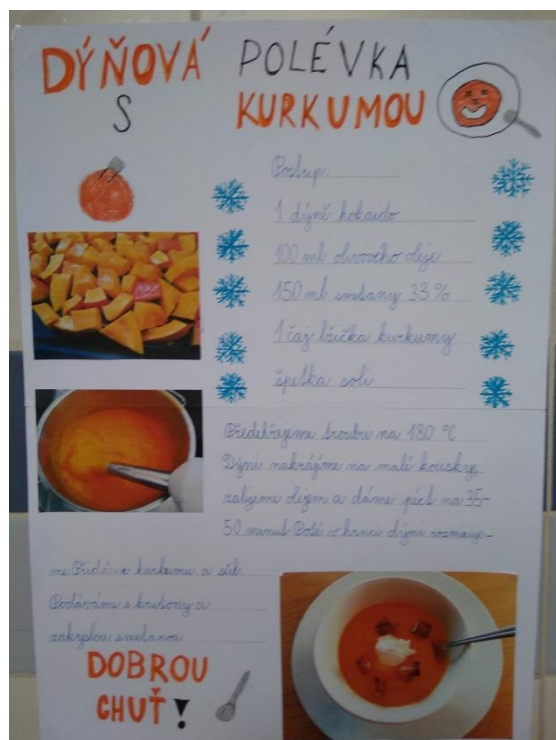 DÝŇOVÁ POLÉVKA
S KURKUMOU
Postup:
1 dýně hokaido
100 ml olivového oleje
150 ml smetany 33 %
1 čaj. lžička kurkumy
špetka soli
Předehřejeme troubu na 180 °C
Dýni nakrájíme na malé kousky,
zalijeme olejem a dáme péct na 35-
50 minut Poté v hrnci dýni rozmixuje-
me Přidáme kurkumu a sůl
Podáváme s krutony a
zakyslou smetanou
DOBROU
CHUŤ!